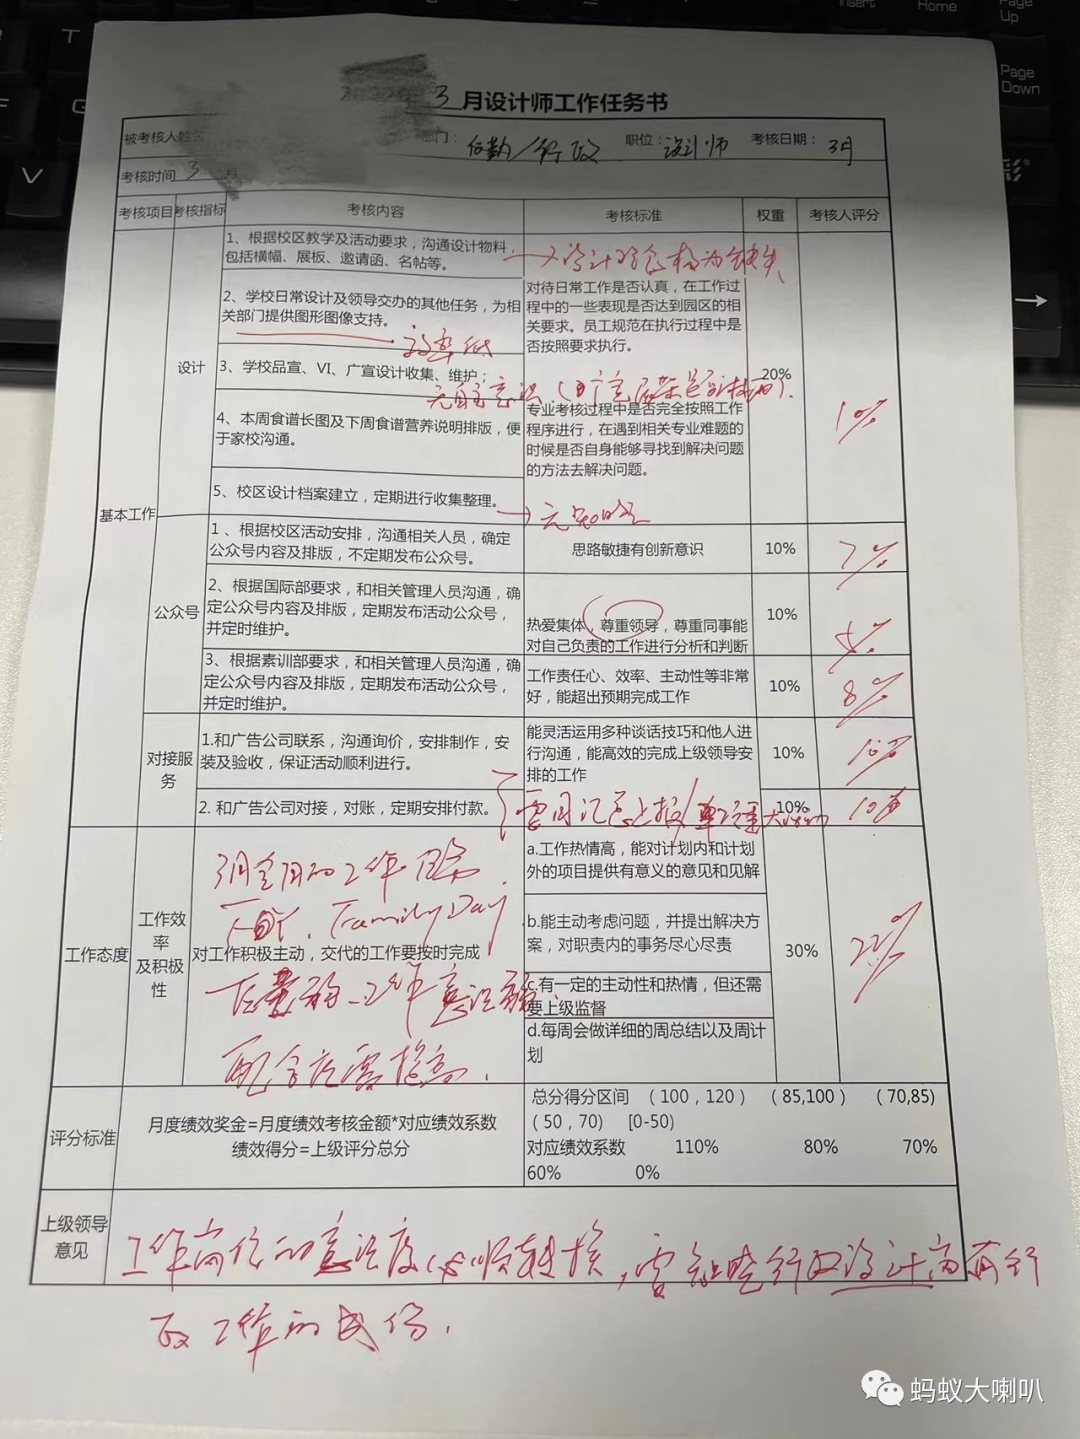 3 月设计师工作任务书
被考核人姓名
部门： 后勤/行政 职位：设计师 考核日期： 3月
考核时间 3 月
考核项目 考核指标 考核内容 考核标准 权重 考核人评分
基本工作
设计
1、根据校区教学及活动要求，沟通设计物料，
包括横幅、展板、邀请函、名帖等。
2、学校日常设计及领导交办的其他任务，为相
关部门提供图形图像支持。
效率低
3、学校品宣、VI、广宣设计收集、维护；
无自主意识
4、本周食谱长图及下周食谱营养说明排版，便
于家校沟通。
5、校区设计档案建立，定期进行收集整理。
对待日常工作是否认真，在工作过
程中的一些表现是否达到园区的相
关要求。员工规范在执行过程中是
否按照要求执行。
专业考核过程中是否完全按照工作
程序进行，在遇到相关专业难题的
时候是否自身能够寻找到解决问题
的方法去解决问题。
20%
公众号
1 、根据校区活动安排，沟通相关人员，确定
公众号内容及排版，不定期发布公众号。
思路敏捷有创新意识
10%
7%
2、根据国际部要求，和相关管理人员沟通，确
定公众号内容及排版，定期发布活动公众号，
并定时维护。
热爱集体，尊重领导，尊重同事能
对自己负责的工作进行分析和判断
10%
5%
3、根据素训部要求，和相关管理人员沟通，确
定公众号内容及排版，定期发布活动公众号，
并定时维护。
工作责任心、效率、主动性等非常
好，能超出预期完成工作
10%
8%
对接服
务
1.和广告公司联系，沟通询价，安排制作，安
装及验收，保证活动顺利进行。
能灵活运用多种谈话技巧和他人进
行沟通，能高效的完成上级领导安
排的工作
10%
10%
2. 和广告公司对接，对账，定期安排付款。
需月汇总上报/
10%
工作态度
工作效
率
及积极
性
3月全月的工作
Family Day
对工作积极主动，交代的工作要按时完成
配合度需提高.
a.工作热情高，能对计划内和计划
外的项目提供有意义的意见和见解
b.能主动考虑问题，并提出解决方
案，对职责内的事务尽心尽责
c.有一定的主动性和热情，但还需
要上级监督
d.每周会做详细的周总结以及周计
划
30%
22%
评分标准
月度绩效奖金=月度绩效考核金额*对应绩效系数
绩效得分=上级评分总分
总分得分区间 （100，120） （85,100） （70,85)
（50，70) [0-50)
对应绩效系数 110% 80% 70%
60% 0%
上级领导
意见
工作岗位的意识度
政工作的成份.
蚂蚁大喇叭